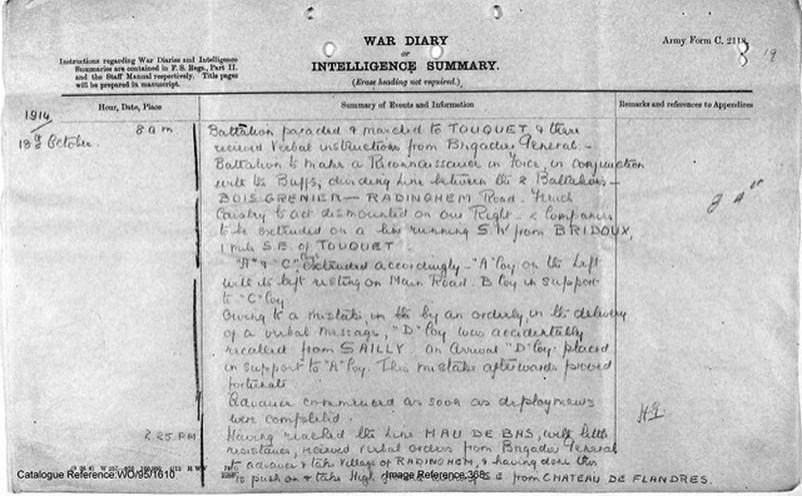 WAR DIARY
or
INTELLIGENCE SUMMARY.
(Erase heading not required.)
Army Form C. 2118.
19
Instructions regarding War Diaries and Intelligence
Summaries are contained in F. S. Regs., Part II.
and the Staff Manual respectively. Title pages
will be prepared in manuscript.
Hour, Date, Place
Summary of Events and Information
Remarks and references to Appendices
1914
18th October. 8 am
Battalion paraded & marched to TOUQUET & there
received Verbal instructions from Brigadier General. -
Battalion to make a Reconnaissance in Force, in conjunction
with the Buffs, dividing line between the 2 Battalions -
BOIS GRENIER - RADINGHEM Road. French
Cavalry to act dismounted on our Right. 2 Companies
to be extended on a line running S W from BRIDOUX,
1 mile S.E. of TOUQUET
"A" & "C" Coys extended accordingly - "A" Coy on the Left
with its left resting on Main Road. B Coy in support
to "C" Coy
Owing to a mistake, in the by an orderly, in the delivery
of a verbal message, "D" Coy was accidentally
recalled from SAILLY. On arrival "D" Coy placed
in support to "A" Coy. This mistake afterwards proved
fortunate
Advance commenced as soon as deployments
were completed.
2.25 PM
Having reached the line HAU DE BAS, with little
resistance, received verbal orders from Brigadier General
to advance & take Village of RADINGHEM, & having done this
to push on & take High from CHATEAU DE FLANDRES.
Catalogue Reference:WO/95/1610
Image Reference:368